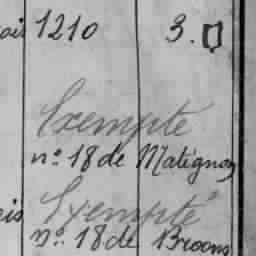 ois 1210 3.0
Exempté
n° 18 de Matignon
Exempté
n° 18 de Broons